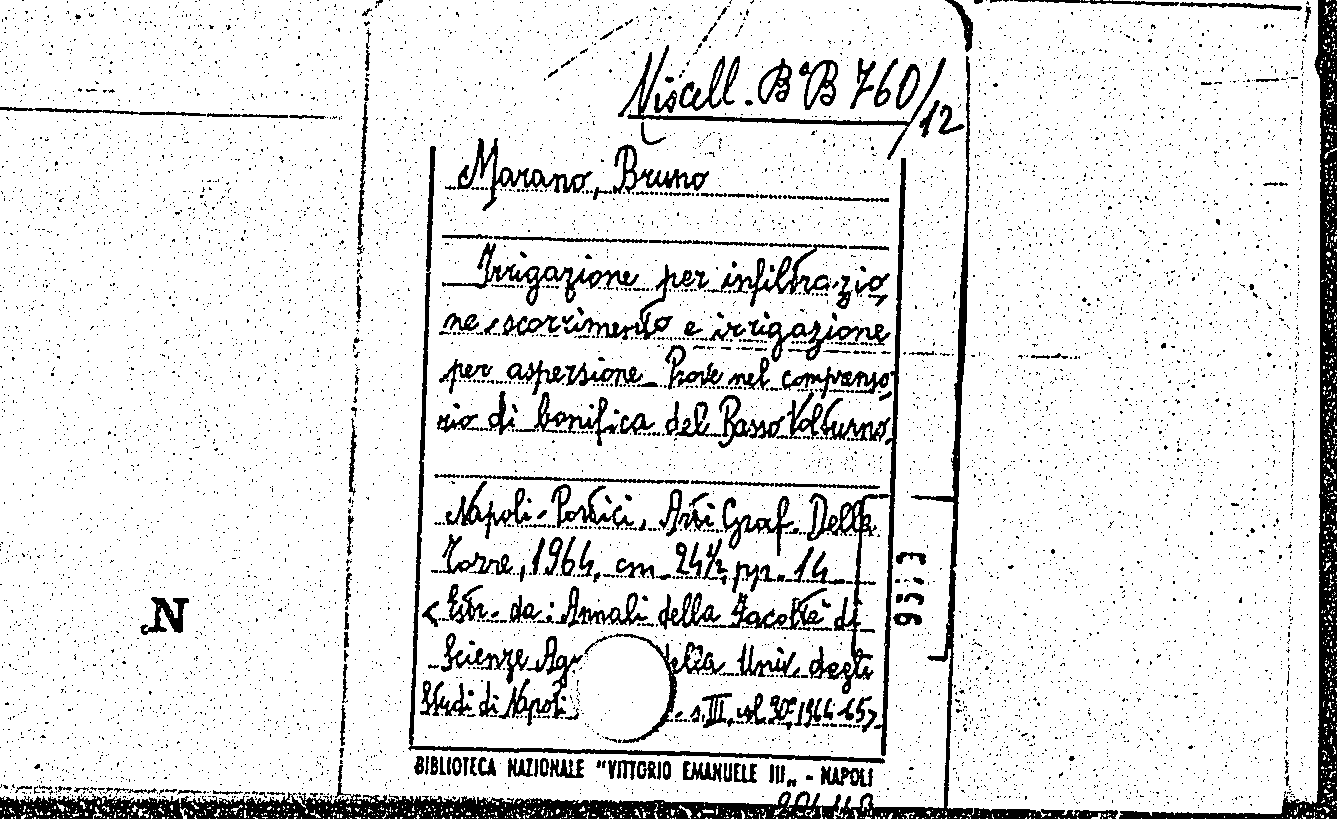 Miscell. B^a B 760/12
Marano, Bruno
Irrigazione per infiltrazio
ne, scorrimento e irrigazione
per aspersione. Prove nel comprenso
rio di bonifica del Basso Volturno.
Napoli-Portici, Arti Graf. Della
Torre, 1964, cm. 24½, pp. 14
< Estr. da: Annali della Facoltà di
Scienze Agr della Univ. degli
Studi di Napoli s. III, vol. 30° 1964-65>
9573
N
BIBLIOTECA NAZIONALE "VITTORIO EMANUELE III„ - NAPOLI